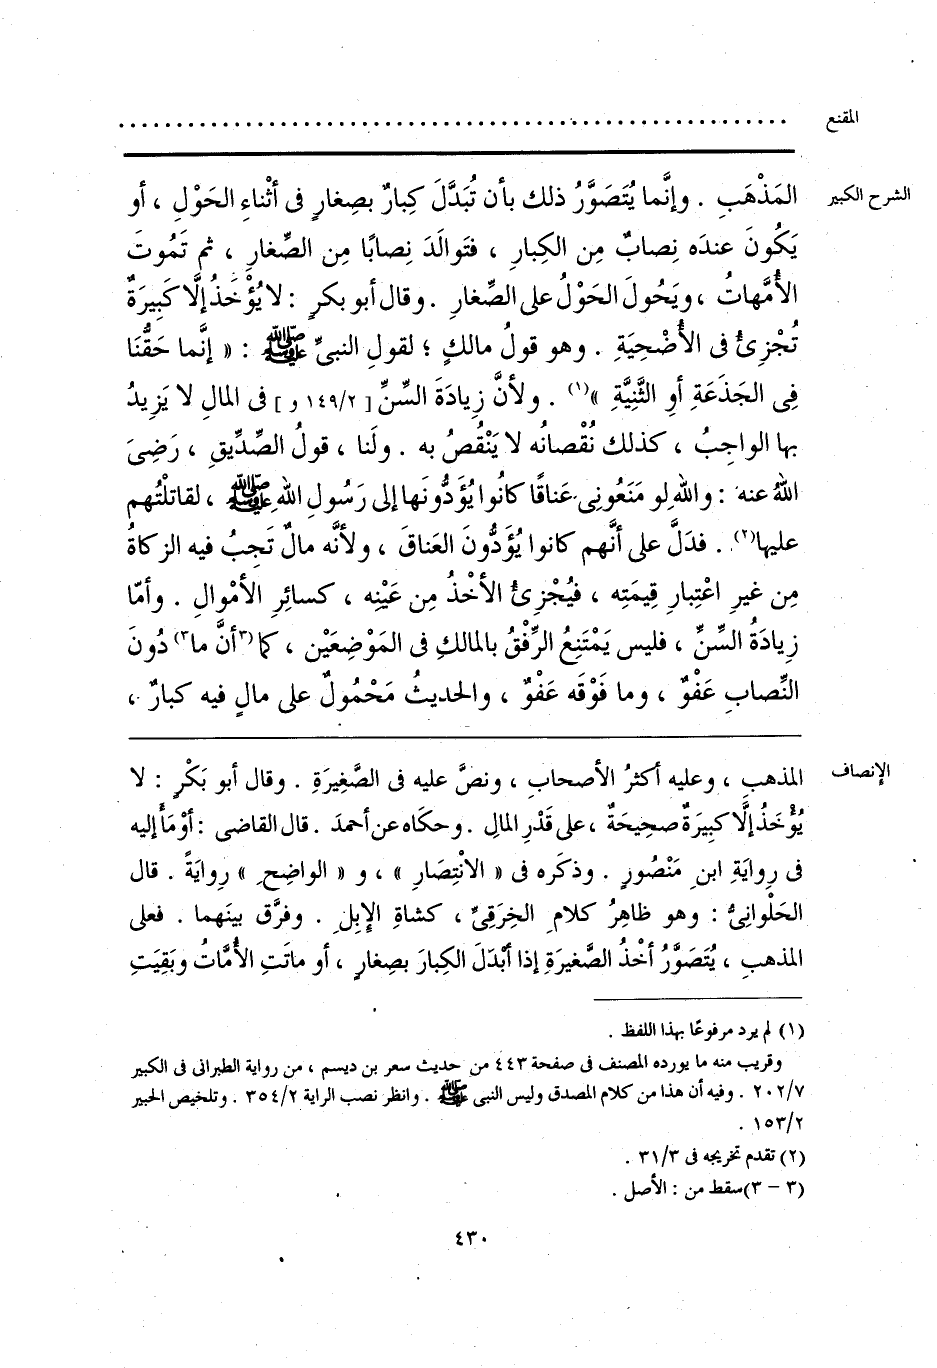 المقنع ........................................................
الشرح الكبير المَذْهَبِ . وإنَّما يُتَصَوَّرُ ذلك بأن تُبَدَّلَ كِبارٌ بصِغارٍ فى أثْناءِ الحَوْلِ ، أو
يَكُونَ عندَه نِصابٌ مِن الكِبارِ ، فتَوالَدَ نِصابًا مِن الصِّغارِ ، ثم تَمُوتَ
الأُمَّهاتُ ، ويَحُولَ الحَوْلُ على الصِّغارِ . وقال أبو بكرٍ : لا يُؤْخَذُ إلَّا كَبِيرَةٌ
تُجْزِئُ فى الأُضْحِيَةِ . وهو قولُ مالكٍ ؛ لقولِ النبىِّ ﷺ : « إنَّما حَقُّنَا
فِى الجَذَعَةِ أوِ الثَّنِيَّةِ »(١) . ولأنَّ زِيادَةَ السِّنِّ [ ١٤٩/٢ و ] فى المالِ لا يَزِيدُ
بها الواجِبُ ، كذلك نُقْصانُه لا يَنْقُصُ به . ولَنا ، قولُ الصِّدِّيقِ ، رَضِىَ
اللهُ عنه : واللهِ لو مَنَعُونِى عَناقًا كانُوا يُؤَدُّونَها إلى رَسُولِ اللهِ ﷺ ، لقاتلْتُهم
عليها(٢) . فدَلَّ على أنَّهم كانوا يُؤَدُّونَ العَناقَ ، ولأنَّه مالٌ تَجِبُ فيه الزكاةُ
مِن غيرِ اعْتِبارِ قِيمَتِه ، فيُجْزِئُ الأخْذُ مِن عَيْنِه ، كسائِرِ الأمْوالِ . وأمّا
زِيادَةُ السِّنِّ ، فليس يَمْتَنِعُ الرِّفْقُ بالمالكِ فى المَوْضِعَيْن ، كما (٣أنَّ ما٣) دُونَ
النِّصابِ عَفْوٌ ، وما فَوْقَه عَفْوٌ ، والحديثُ مَحْمُولٌ على مالٍ فيه كبارٌ ،
الإنصاف المذهبِ ، وعليه أكثرُ الأصحابِ ، ونصَّ عليه فى الصَّغِيرَةِ . وقال أبو بَكْرٍ : لا
يُؤْخَذُ إلَّا كبيرَةٌ صحيحَةٌ ، على قَدْرِ المالِ . وحكَاه عن أحمدَ . قال القاضى : أوْمَأَ إليه
فى رِوايَةِ ابنِ مَنْصُورٍ . وذكَره فى « الانْتِصَارِ » ، و « الواضِحِ » رِوايَةً . قال
الحَلْوانِىُّ : وهو ظاهِرُ كلامِ الخِرَقِىِّ ، كشاةِ الإِبلِ . وفرَّق بينَهما . فعلى
المذهبِ ، يُتَصَوَّرُ أخْذُ الصَّغيرَةِ إذا أبْدَلَ الكِبارَ بصِغارٍ ، أو ماتَتِ الأُمَّاتُ وبَقِيَتِ
(١) لم يرد مرفوعًا بهذا اللفظ .
وقريب منه ما يورده المصنف فى صفحة ٤٤٣ من حديث سعر بن ديسم ، من رواية الطبرانى فى الكبير
٢٠٢/٧ . وفيه أن هذا من كلام المصدق وليس النبى ﷺ . وانظر نصب الراية ٣٥٤/٢ . وتلخيص الحبير
١٥٣/٢ .
(٢) تقدم تخريجه فى ٣١/٣ .
(٣ - ٣) سقط من : الأصل .
٤٣٠